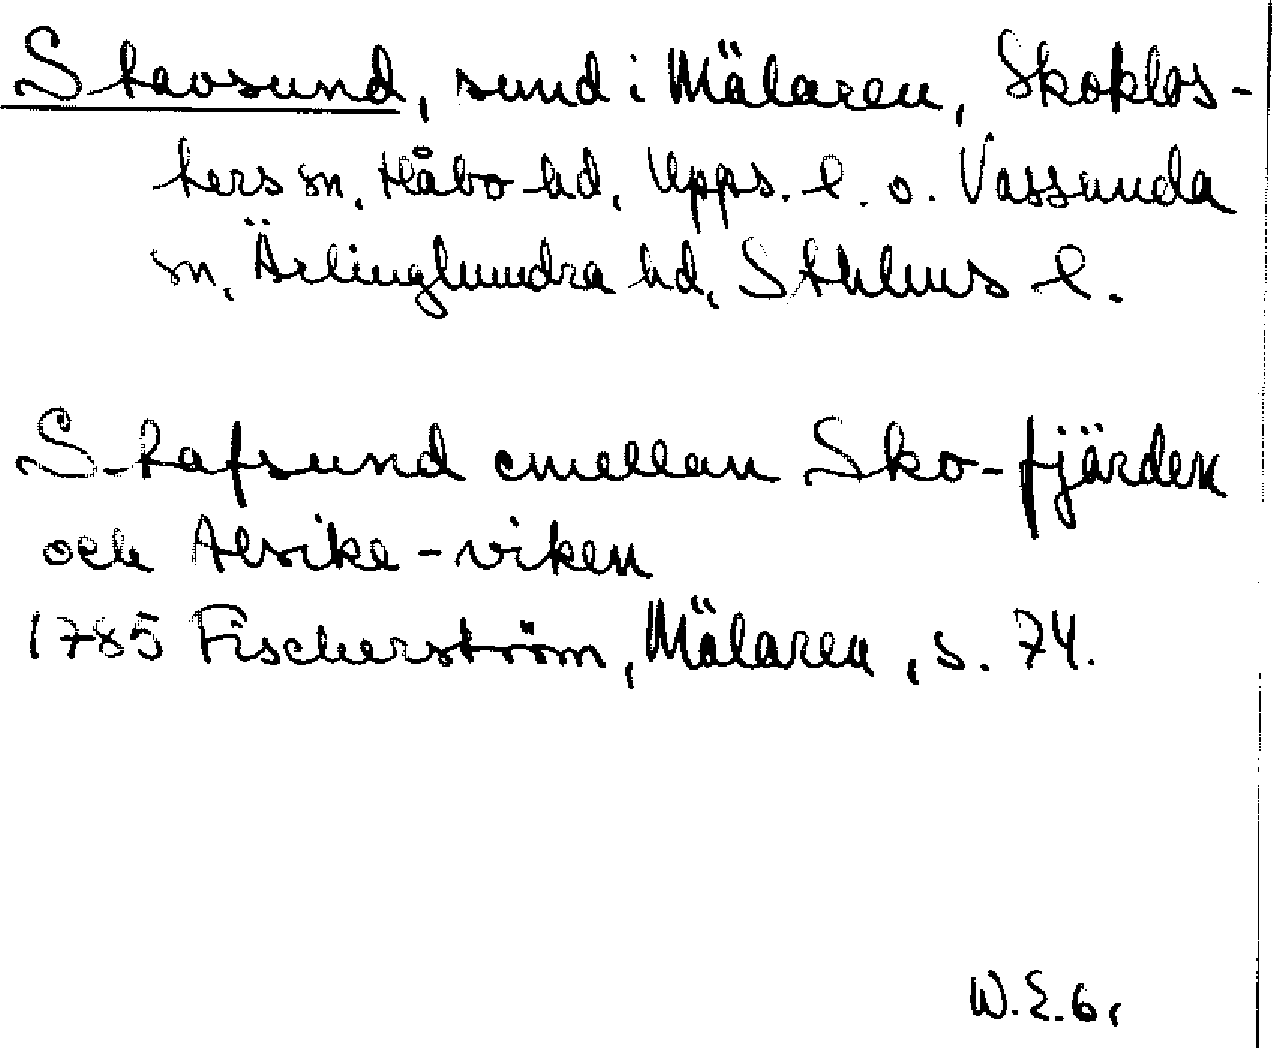 Stavsund, sund i Mälaren, Skoklos-
ters sn, Håbo hd, Upps. l. o. Vassunda
sn, Ärlinghundra hd, Sthlms l.
Stafsund emellan Sko-fjärden
och Alsike-viken
1785 Fischerström, Mälaren, s. 74.
W.E.6,